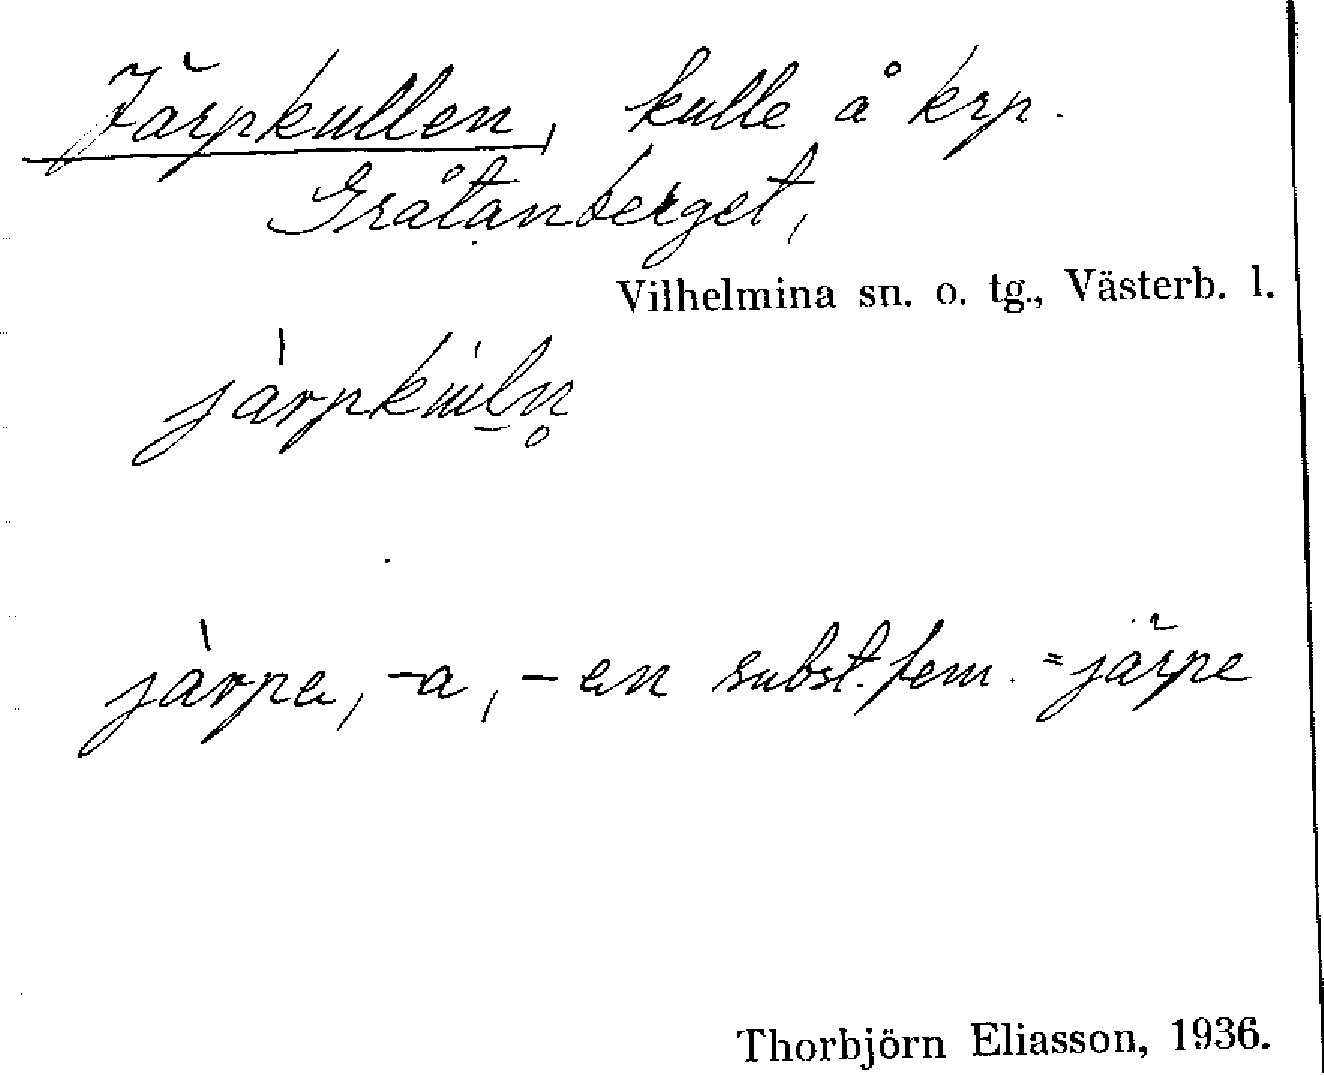 Järpkullen, kulle å krp.
Gråtanberget,
Vilhelmina sn. o. tg., Västerb. l.
järpkuln̥
järpa, -a, -en subst. fem. = järpe
Thorbjörn Eliasson, 1936.